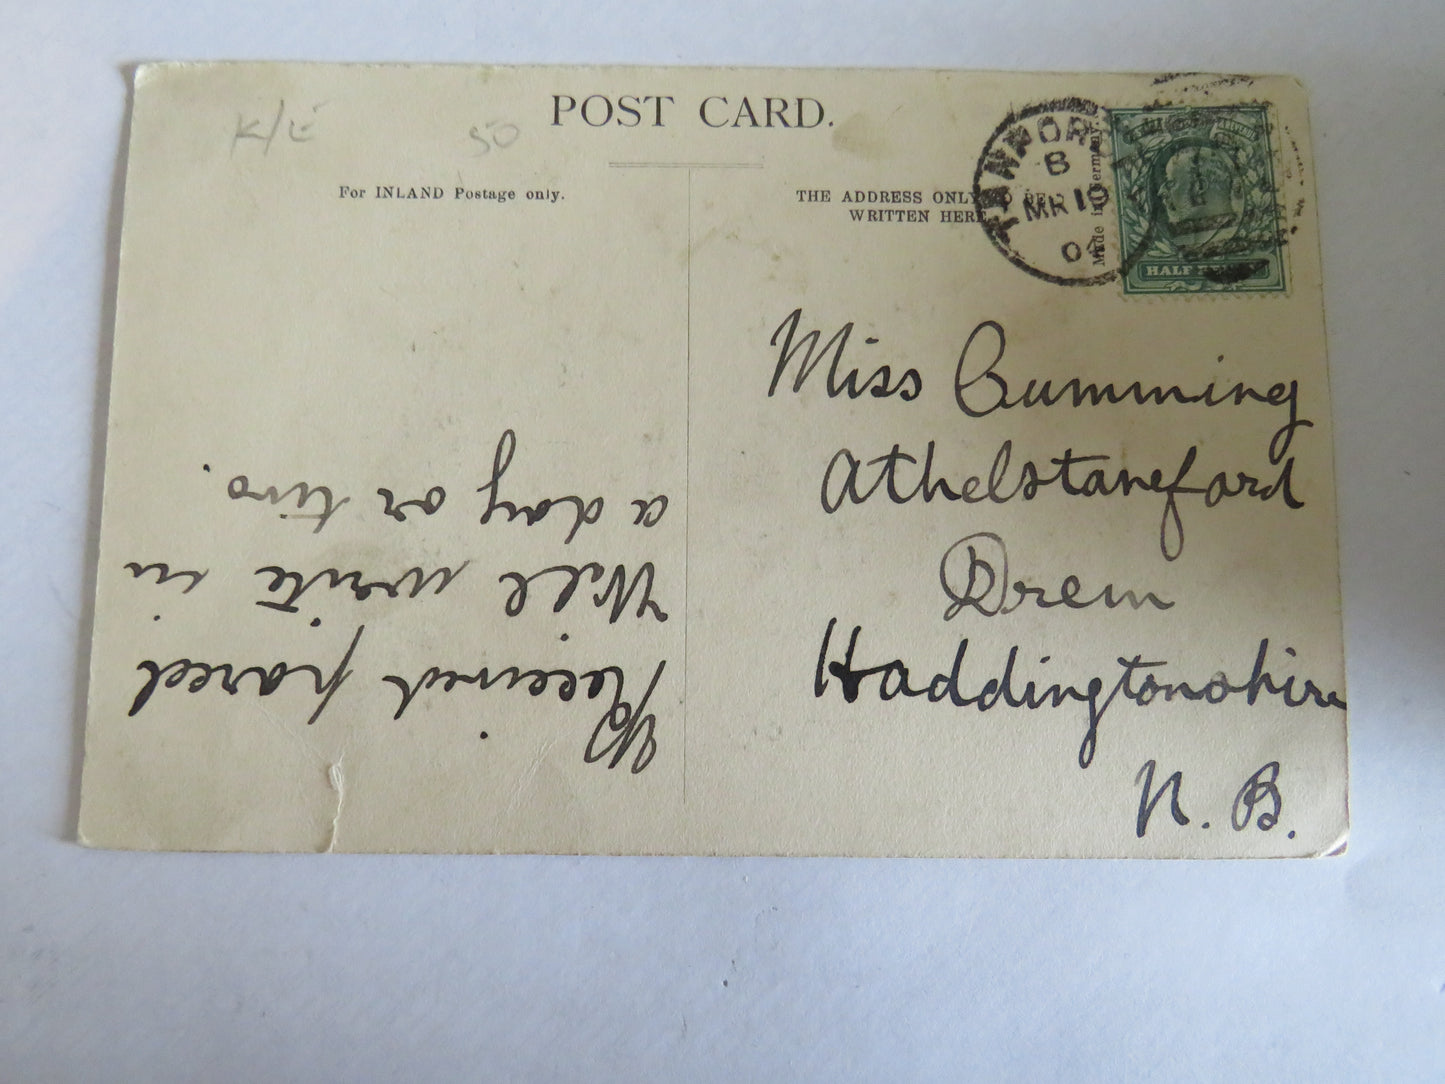 K/E 50
POST CARD.
For INLAND Postage only.
THE ADDRESS ONLY TO BE
WRITTEN HERE
Made in Germany.
B
MR 10
HALF PENNY
Received parcel
Will write in
a day or two.
Miss Cumming
Athelstaneford
Drem
Haddingtonshire
N. B.